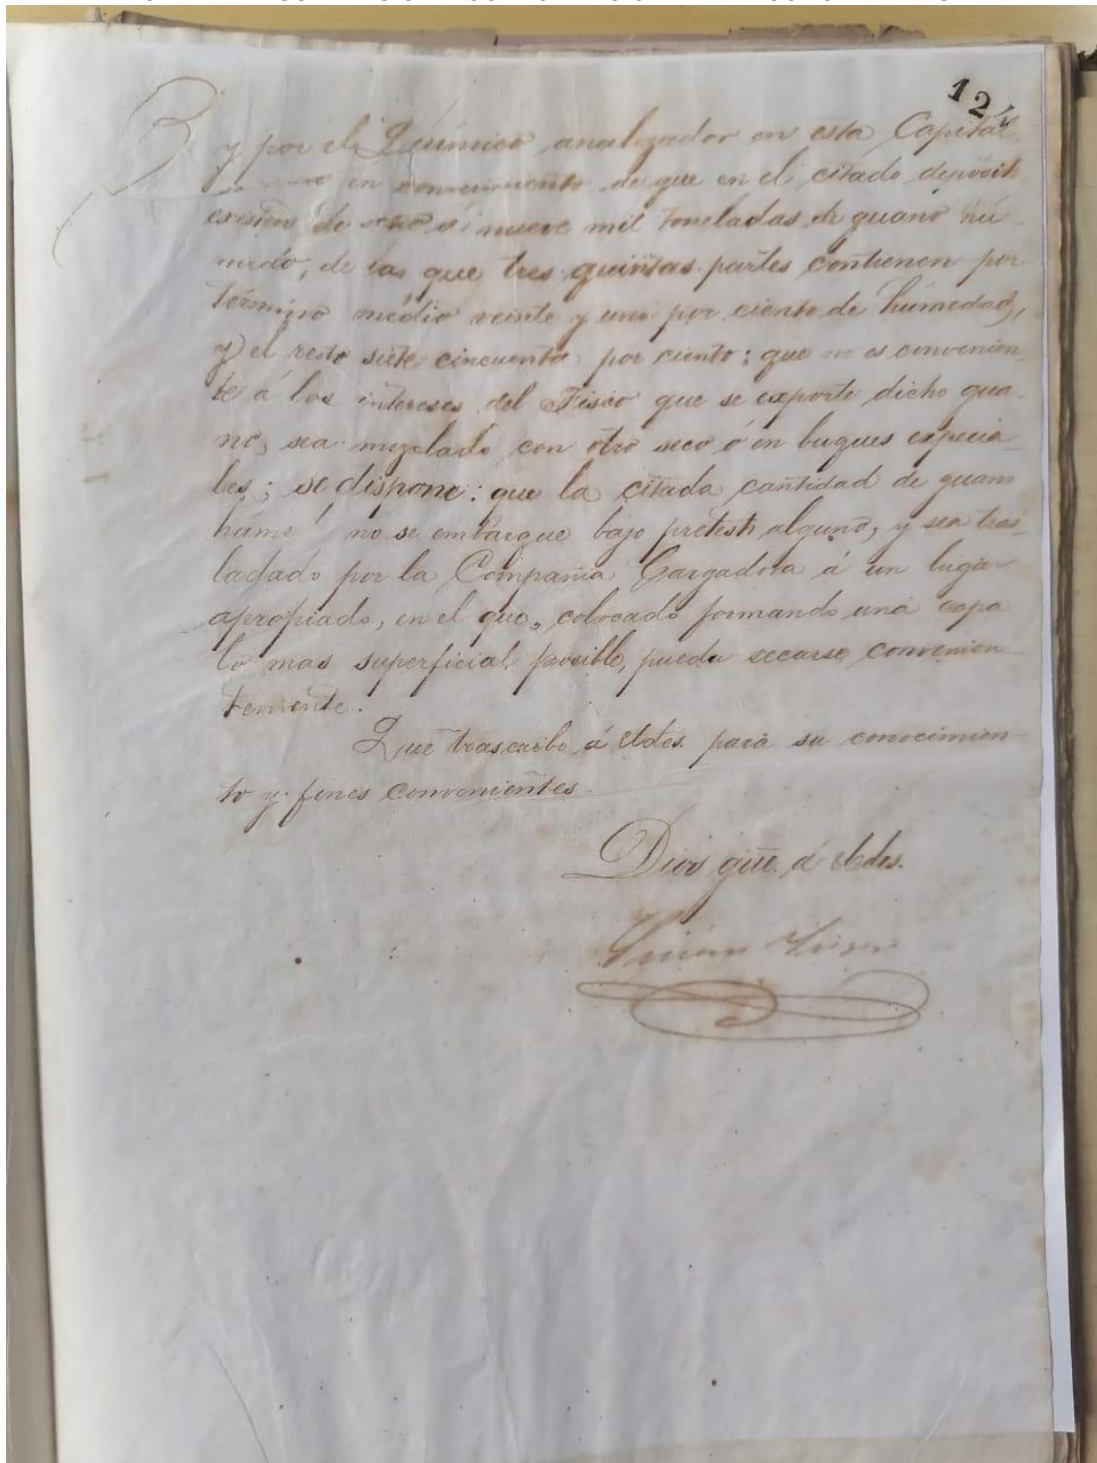 124
y por el Químico analizador en esta Capital
en conocimiento de que en el citado depósito
existen de ocho á nueve mil toneladas de guano hú-
medo, de las que tres quintas partes contienen por
término médio veinte y uno por ciento de húmedad,
y el resto siete cincuenta por ciento; que no es convenien-
te á los intereses del Fisco que se exporte dicho gua-
no, sea mezclado con otro seco ó en buques especia-
les; se dispone: que la citada cantidad de guano
húme no se embarque bajo pretesto alguno, y sea tras-
ladado por la Compañia Cargadora á un lugar
apropiado, en el que, colocado formando una capa
lo mas superficial posible, pueda secarse convenien-
temente.
Que trascribo á Udes. para su conocimien-
to y fines convenientes.
Dios gũe. á Udes.